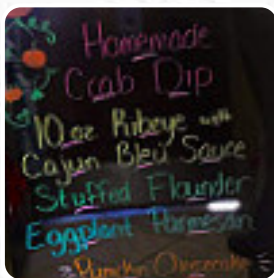 Homemade
Crab Dip
10 oz Ribeye with
Cajun Bleu Sauce
Stuffed Flounder
Eggplant Parmesan
Pumpkin Cheesecake